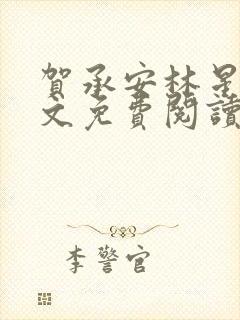 賀承安林是
文免費閱讀
李警官